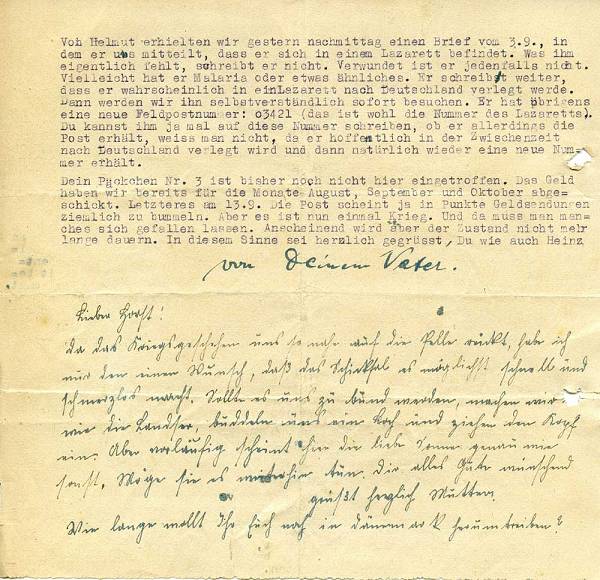 Von Helmut erhielten wir gestern nachmittag einen Brief vom 3.9., in
dem er uns mitteilt, dass er sich in einem Lazarett befindet. Was ihm
eigentlich fehlt, schreibt er nicht. Verwundet ist er jedenfalls nicht.
Vielleicht hat er Malaria oder etwas ähnliches. Er schreibst weiter,
dass er wahrscheinlich in einLazarett nach Deutschland verlegt werde.
Dann werden wir ihn selbstverständlich sofort besuchen. Er hat übrigens
eine neue Feldpostnummer: o3421 (das ist wohl die Nummer des Lazaretts).
Du kannst ihm ja mal auf diese Nummer schreiben, ob er allerdings die
Post erhält, weiss man nicht, da er hoffentlich in der Zwischenzeit
nach Deutschland verlegt wird und dann natürlich wieder eine neue Num-
mer erhält.
Dein Päckchen Nr. 3 ist bisher noch nicht hier eingetroffen. Das Geld
haben wir bereits für die Monate August, September und Oktober abge-
schickt. Letzteres am 13.9. Die Post scheint ja in Punkte Geldsendungen
ziemlich zu bummeln. Aber es ist nun einmal Krieg. Und da muss man man-
ches sich gefallen lassen. Anscheinend wird aber der Zustand nicht mehr
lange dauern. In diesem Sinne sei herzlich gegrüsst, Du wie auch Heinz
von Deinem Vater.
Lieber Horst!
Da das Kriegsgeschehen uns so nahe auf die Pelle rückt, habe ich
nur den einen Wunsch, daß das Schicksal es möglichst schnell und
schmerzlos macht. Sollte es uns zu bunt werden, machen wir's
wie die Landser, buddeln uns ein Loch und ziehen den Kopf
ein. Aber vorläufig scheint hier die liebe Sonne genau wie
sonst. Möge sie es weiterhin tun. Dir alles Gute wünschend
grüßt herzlich Mutter.
Wie lange wollt Ihr Euch noch in Dänemark herumtreiben?